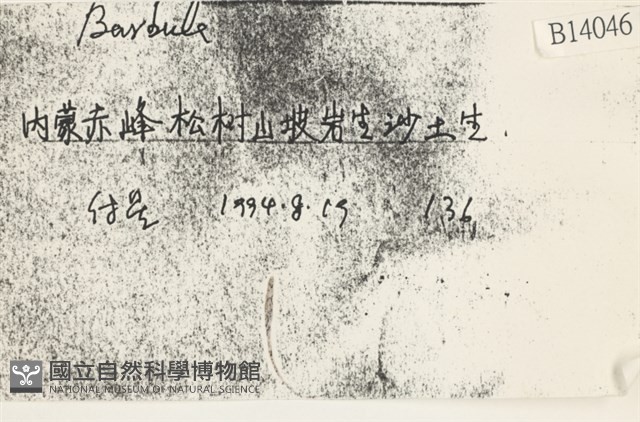 Barbula
B14046
内蒙赤峰松树山坡岩生沙土生.
付旻 1994.8.19 136
國立自然科學博物館
NATIONAL MUSEUM OF NATURAL SCIENCE